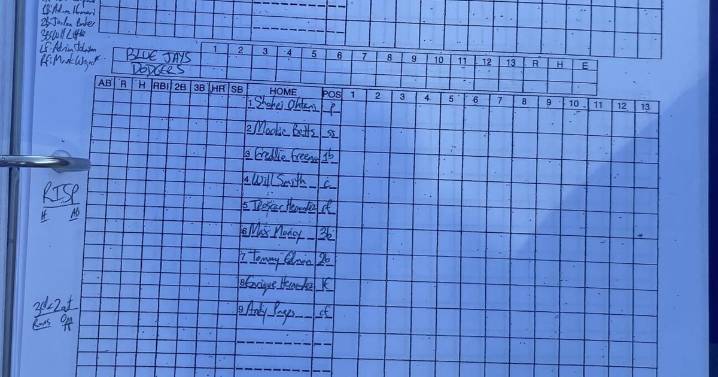 1B
2B
3B Will Little
LF: Adrian Johnson
RF: Mark Wegner
1 2 3 4 5 6 7 8 9 10 11 12 13 R H E
BLUE JAYS
DODGERS
AB R H RBI 2B 3B HR SB HOME POS 1 2 3 4 5 6 7 8 9 10 11 12 13
1 Shohei Ohtani P
2 Mookie Betts SS
3 Freddie Freeman 1b
4 Will Smith C
5 Teoscar Hernandez rf
6 Max Muncy 3b
7 Tommy Edman 2b
8 Enrique Hernandez lf
9 Andy Pages cf
RISP
H AB
3rd < 2 out
Runs